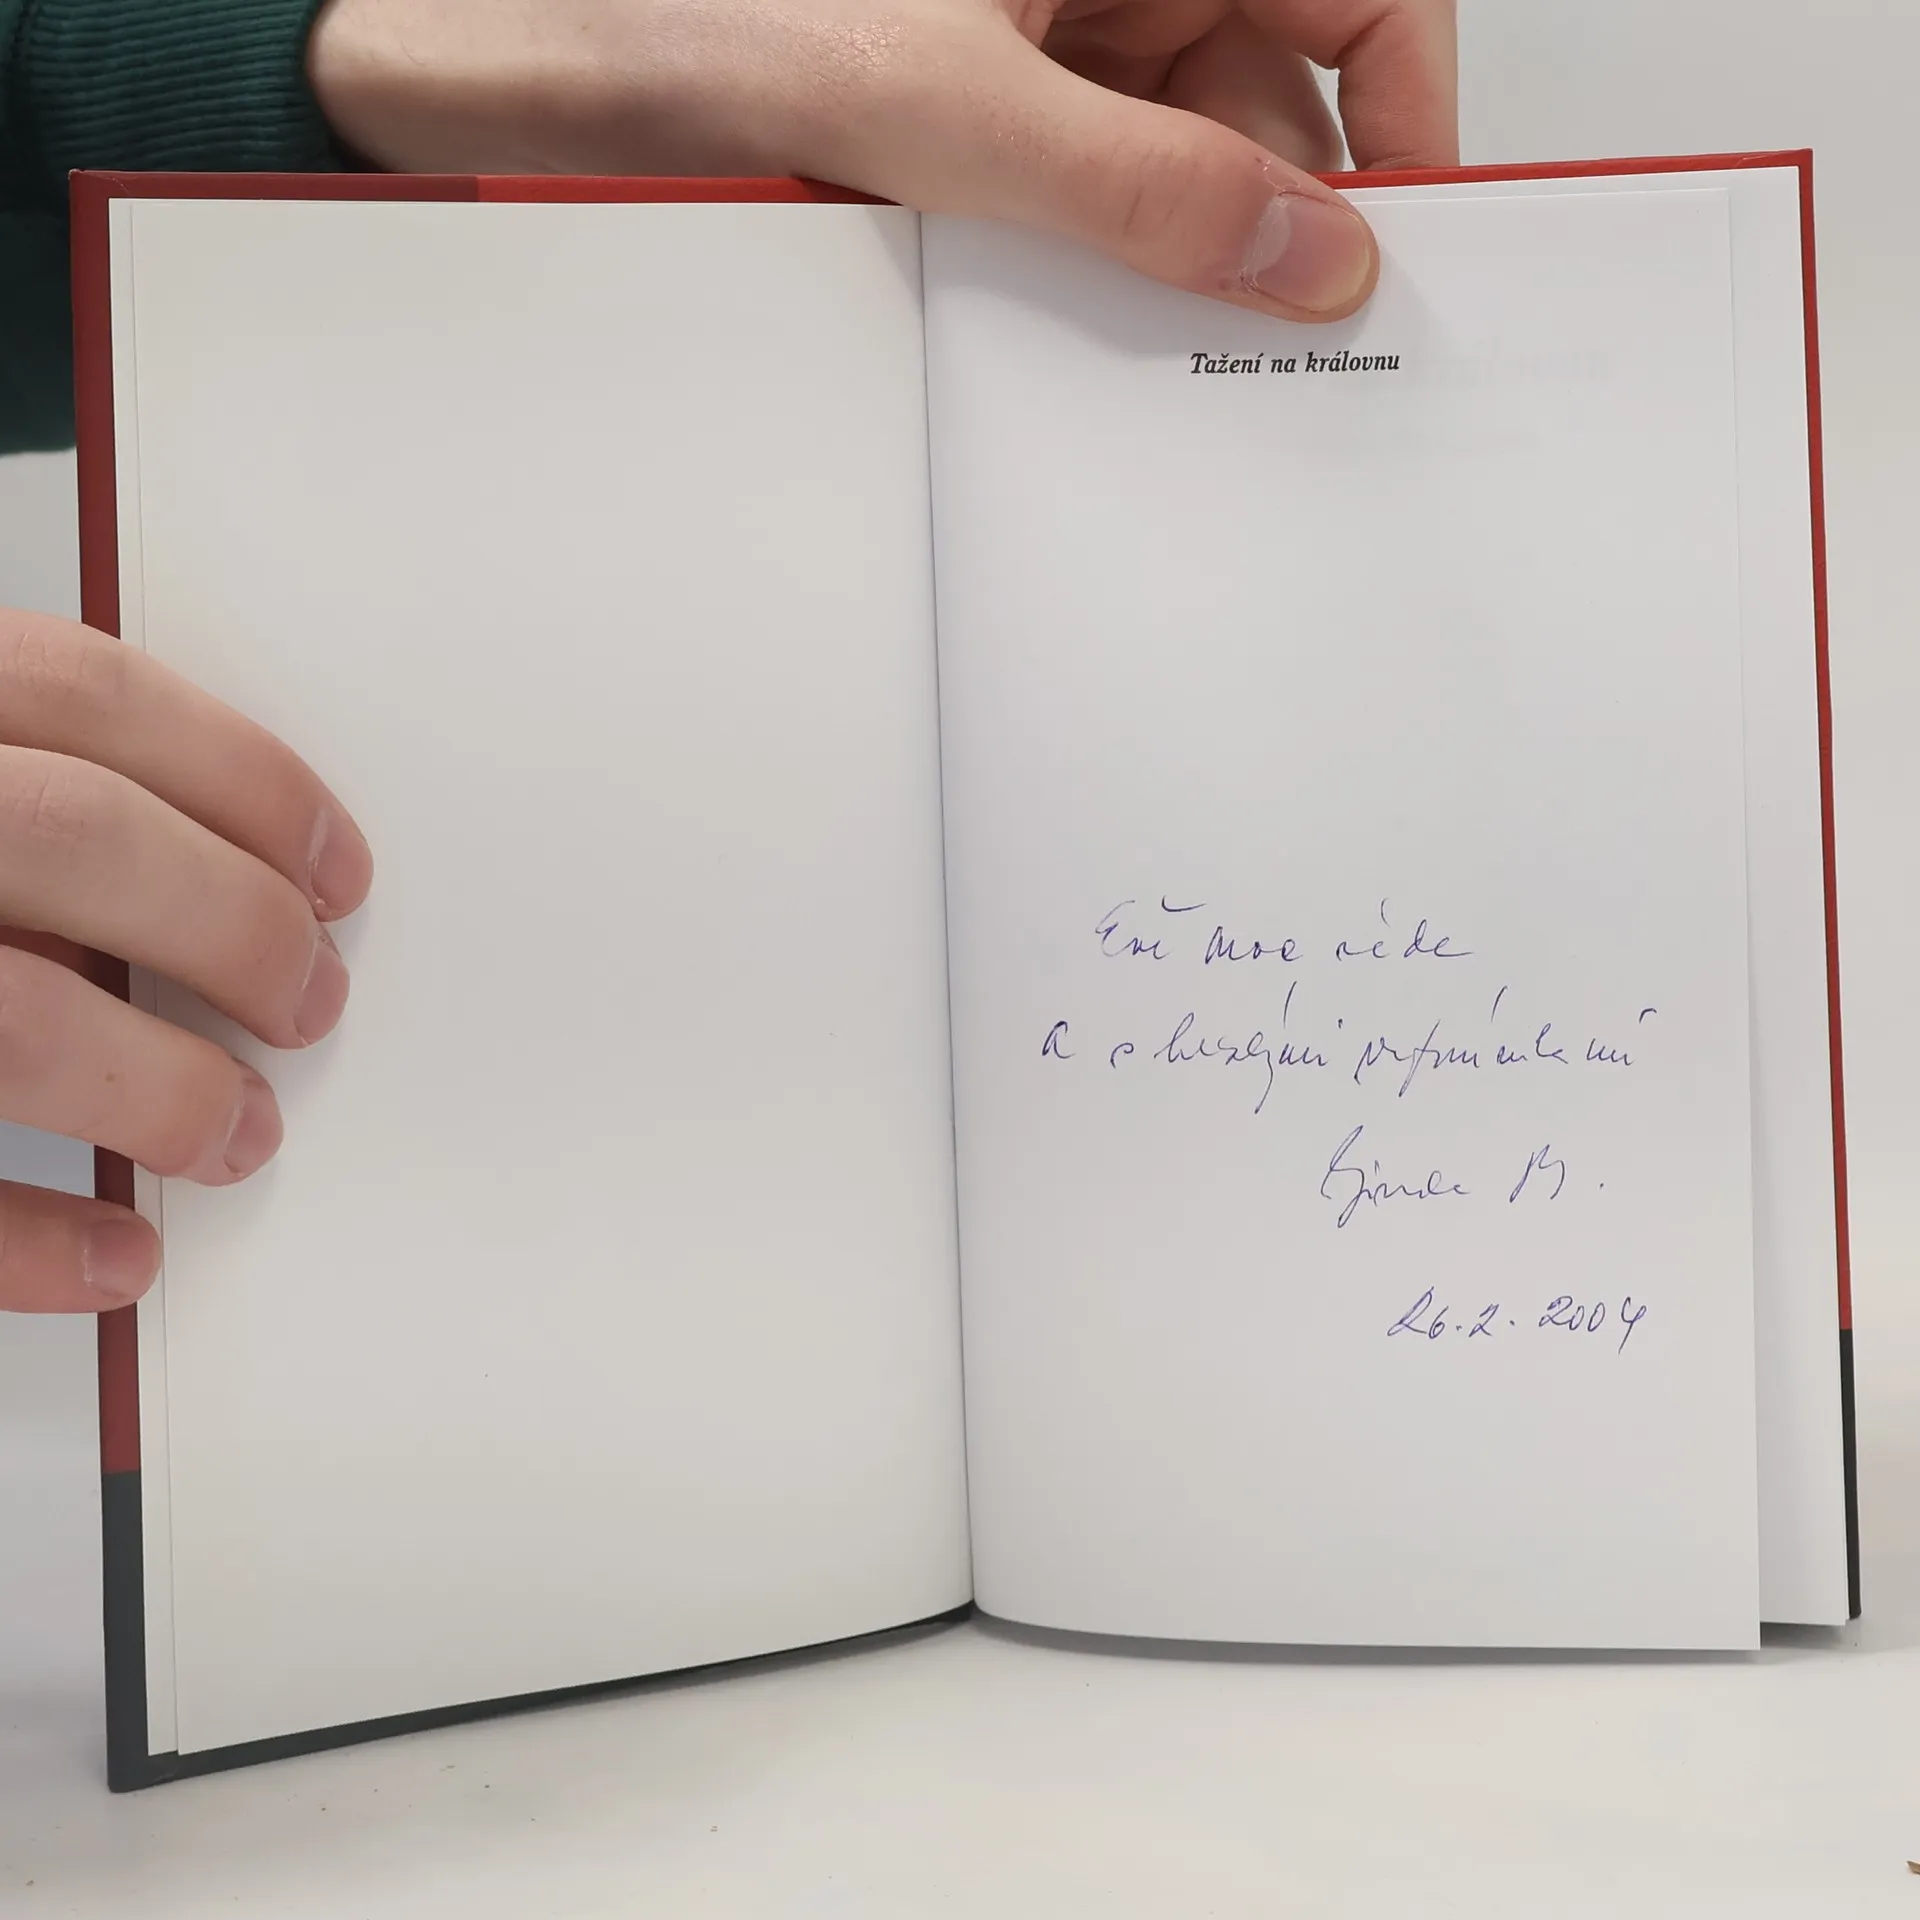 Tažení na královnu
Evě moc ráda
a s hezkými vzpomínkami
26.2.2004